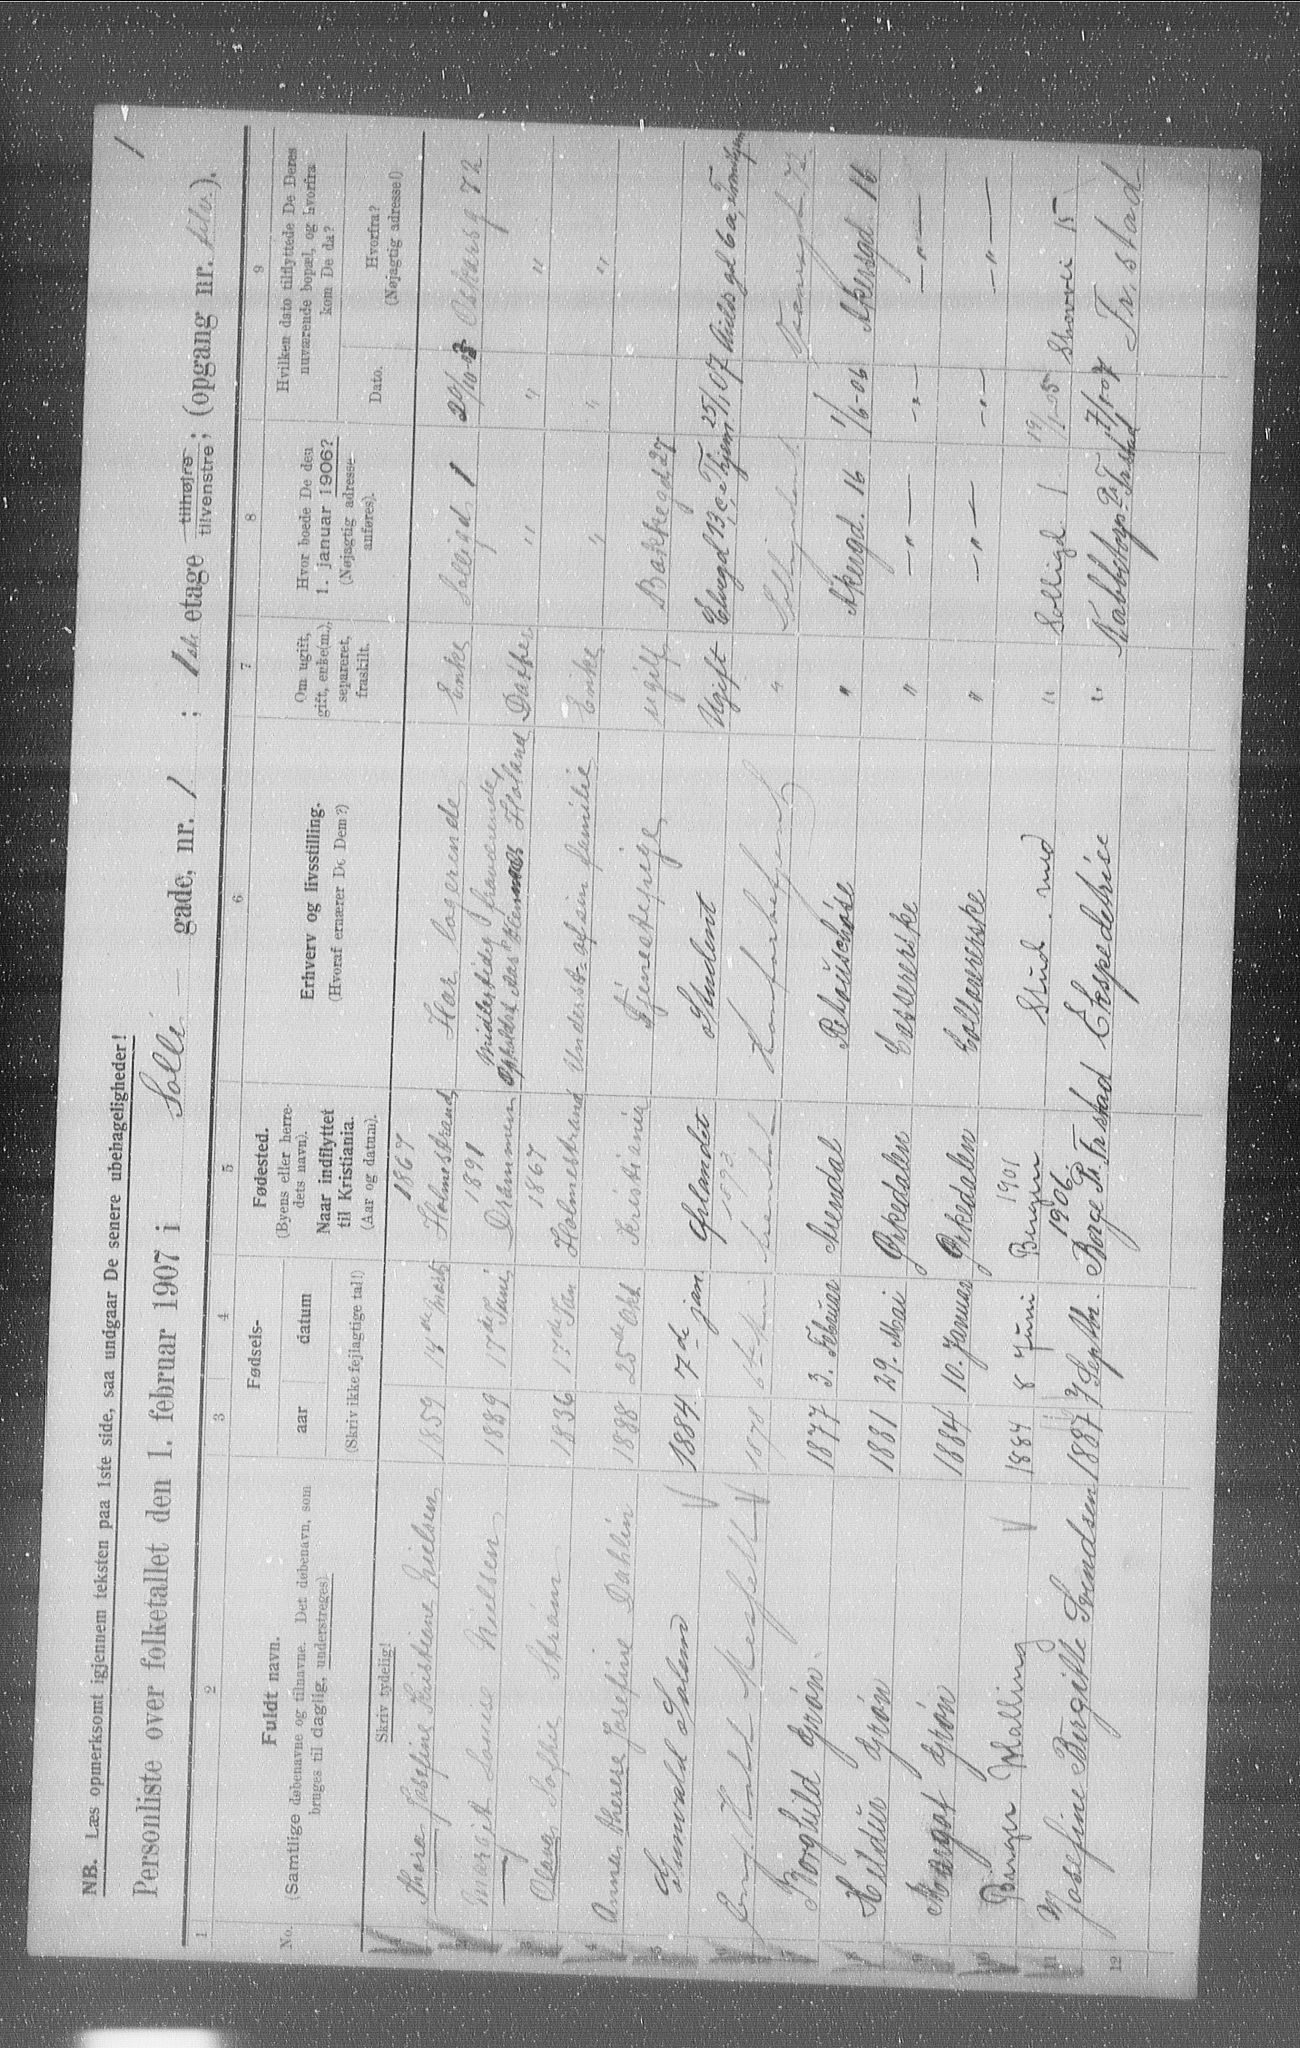 NB. Læs opmerksomt igjennem teksten paa 1ste side, saa undgaar De senere ubehageligheder!
1
Personliste over folketallet den 1. februar 1907 i Solli gade, nr. 1 ; 1ste etage tilhøjre tilvenstre; (opgang nr. ).
1 2 3 4 5 6 7 8 9
No.
Fuldt navn.
(Samtlige døbenavne og tilnavne. Det døbenavn, som bruges til daglig, understreges).
Skriv tydelig!
Fødsels-
aar
datum
(Skriv ikke fejlagtige tal!)
Fødested.
(Byens eller herredets navn).
Naar indflyttet til Kristiania.
(Aar og datum).
Erhverv og livsstilling.
(Hvoraf ernærer De Dem?)
Om ugift, gift, enke(m.), separeret, fraskilt.
Hvor boede De den 1. januar 1906?
(Nøjagtig adresse anføres).
Hvilken dato tilflyttede De Deres nuværende bopæl, og hvorfra kom De da?
Dato.
Hvorfra?
(Nøjagtig adresse!)
1 Thora Josefine Kristiane Nielsen 1859 14de Marts 1867 Holmestrand Har logerende Enke Solligd 1 Oskarsg 72
2 Margit Louise Nielsen 1889 17de Juni 1891 Drammen Midlertidig fraværende, Datter " " "
3 Olava Sofhie Strøm 1836 17de Jan 1867 Holmestrand Underst. af sin familie Enke " " "
4 Anna Therese Josefine Dahlin 1888 25de Okt Kristiania Tjenestepige ugift Bakkegd 27
5 Gunvald Solem 1884 7de jan. Ørlandet Student Ugift 25/1 07
6 1878 "
7 Borghild Grøn 1877 3. Februar Arendal " Akersgd. 16 1/6-06 Akersgd. 16
8 Heldur Grøn 1881 29. Mai Orkedalen Casserske " -"- -"- -"-
9 Margot Grøn 1884 10. Januar Orkedalen " -"- -"- -"-
10 Birger Malling 1884 8 Juni 1901 Bergen Stud. med " Solligd. 1
11 Josefine Birgitte Svendsen 1887 Septbr. 1906. Borge Pr. Fr.stad Ekspedetrise " Fr.stad
12